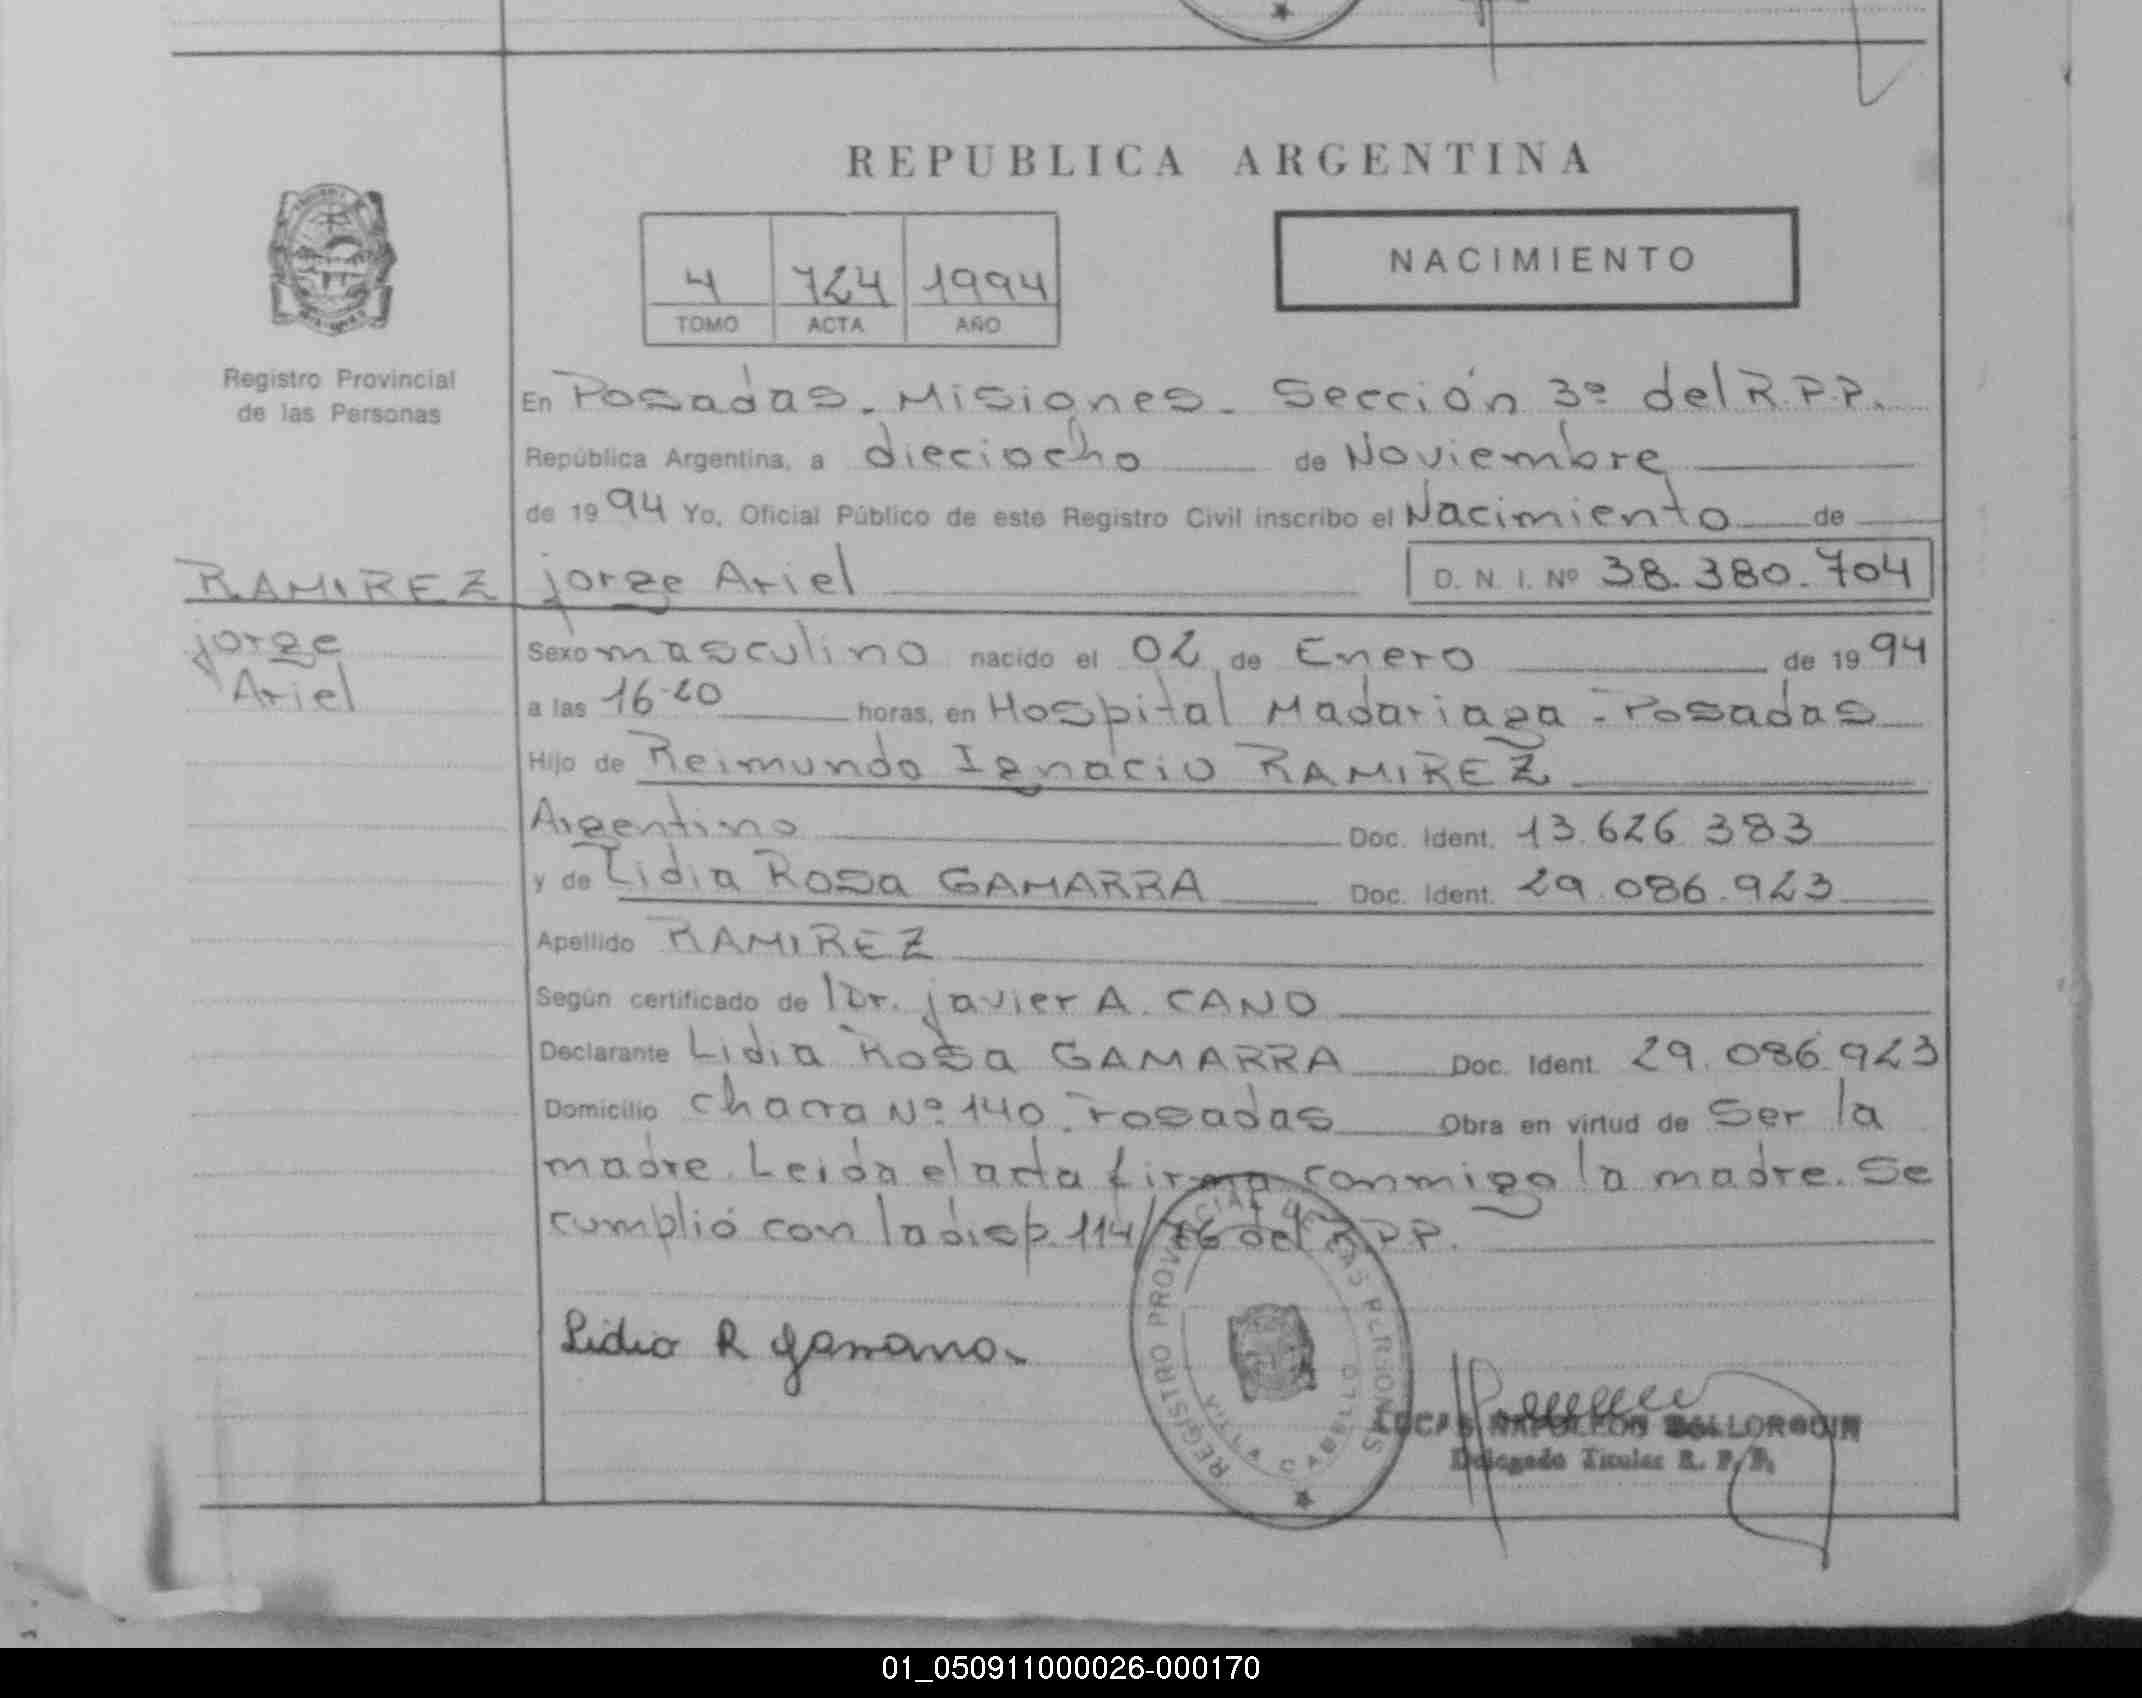 REPUBLICA ARGENTINA
4 724 1994
TOMO ACTA AÑO
NACIMIENTO
Registro Provincial
de las Personas
En Posadas. Misiones. Sección 3º del R.P.P.
República Argentina, a dieciocho de Noviembre
de 1994 Yo, Oficial Público de este Registro Civil inscribo el Nacimiento de
RAMIREZ jorge Ariel D. N. I. Nº 38.380.704
jorge
Ariel
Sexo masculino nacido el 02 de Enero de 1994
a las 16-20 horas, en Hospital Madariaga - Posadas
Hijo de Reimundo Ignacio RAMIREZ
Argentino Doc. Ident. 13.626.383
y de Lidia Rosa GAMARRA Doc. Ident. 29.086.923
Apellido RAMIREZ
Según certificado de Dr. javier A. CANO
Declarante Lidia Rosa GAMARRA Doc. Ident. 29.086.923
Domicilio chacra Nº 140. Posadas Obra en virtud de Ser la
madre. Leida el acta firma conmigo la madre. Se
cumplió con la disp. 114/76 del R.P.P.
Lidia R gamarra.
REGISTRO PROVINCIAL DE LAS PERSONAS
VILLA CABELLO
NAPOLEON
Delegado Titular R. P. P.
01_050911000026-000170